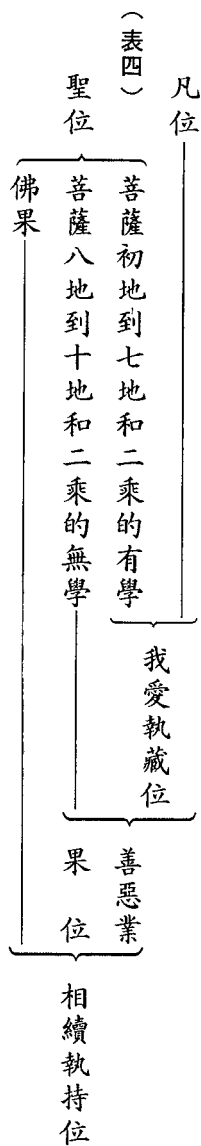 凡位
（表四）
聖位
菩薩初地到七地和二乘的有學
菩薩八地到十地和二乘的無學
佛果
我愛執藏位
善惡業
果位
相續執持位